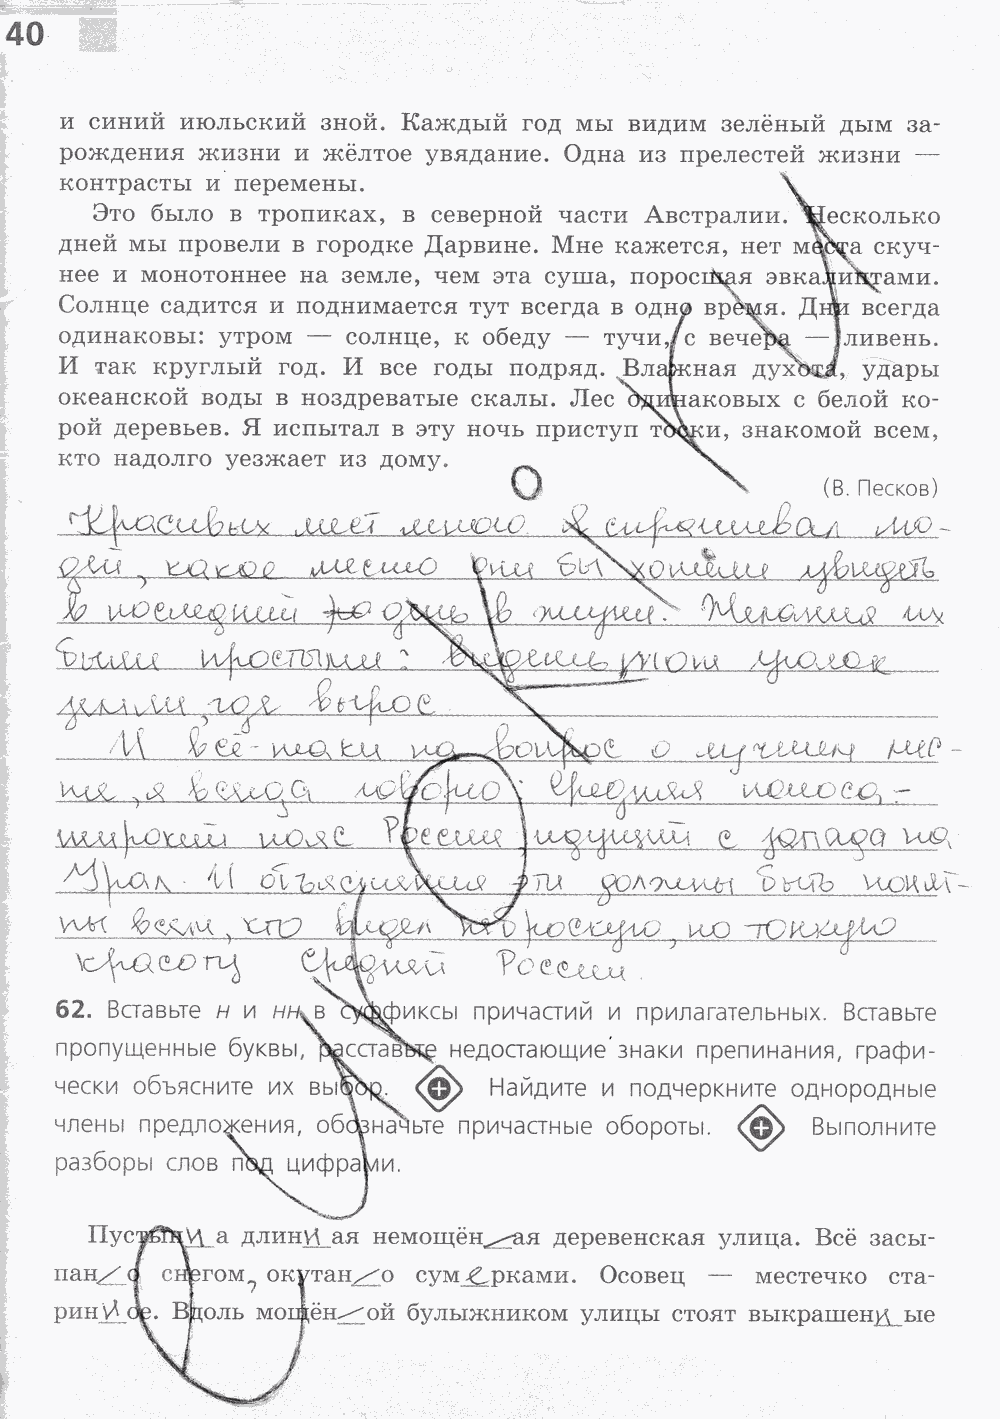 40
и синий июльский зной. Каждый год мы видим зелёный дым за-
рождения жизни и жёлтое увядание. Одна из прелестей жизни —
контрасты и перемены.
Это было в тропиках, в северной части Австралии. Несколько
дней мы провели в городке Дарвине. Мне кажется, нет места скуч-
нее и монотоннее на земле, чем эта суша, поросшая эвкалиптами.
Солнце садится и поднимается тут всегда в одно время. Дни всегда
одинаковы: утром — солнце, к обеду — тучи, с вечера — ливень.
И так круглый год. И все годы подряд. Влажная духота, удары
океанской воды в ноздреватые скалы. Лес одинаковых с белой ко-
рой деревьев. Я испытал в эту ночь приступ тоски, знакомой всем,
кто надолго уезжает из дому.
(В. Песков)
Красивых мест много. Я спрашивал лю-
дей, какое место они бы хотели увидеть
в последний день в жизни. Желания их
были простыми: видеть тот уголок
земли, где вырос
И всё-таки на вопрос о лучшем мес-
те, я всегда говорю: Средняя полоса-
широкий пояс России, идущий с запада на
Урал. И объяснения эти должны быть понят-
ны всем, кто видел неброскую, но тонкую
красоту средней России.
62. Вставьте н и нн в суффиксы причастий и прилагательных. Вставьте
пропущенные буквы, расставьте недостающие знаки препинания, графи-
чески объясните их выбор. Найдите и подчеркните однородные
члены предложения, обозначьте причастные обороты. Выполните
разборы слов под цифрами.
Пустынна длинная немощён_ая деревенская улица. Всё засы-
пан_о снегом, окутан_о сумерками. Осовец — местечко ста-
ринное. Вдоль мощён_ой булыжником улицы стоят выкрашенные